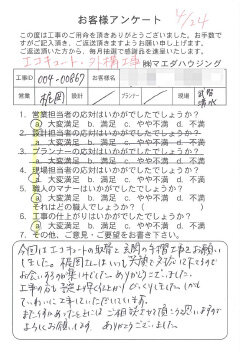 お客様アンケート
4/24
この度は工事のご用命を頂きありがとうございました。お手数で
すがご記入頂き、ご返送頂きますようお願い申し上げます。
ご返送頂いた方から、毎月抽選で感謝品を進呈いたします。
エコキュート・外構工事
㈱マエダハウジング
工事ID 004-00867 お客様名
営業 梶岡 設計 プランナー 現場
1. 営業担当者の応対はいかがでしたでしょうか?
a 大変満足 b. 満足 c. やや不満 d. 不満
2. 設計担当者の応対はいかがでしたでしょうか?
a. 大変満足 b. 満足 c. やや不満 d. 不満
3. プランナーの応対はいかがでしたでしょうか?
a. 大変満足 b. 満足 c. やや不満 d. 不満
4. 現場担当者の応対はいかがでしたでしょうか?
a 大変満足 b. 満足 c. やや不満 d. 不満
5. 職人のマナーはいかがでしたでしょうか?
a 大変満足 b. 満足 c. やや不満 d. 不満
それはどの職人でしょうか? ( )
6. 工事の仕上がりはいかがでしたでしょうか?
a 大変満足 b. 満足 c. やや不満 d. 不満
7. その他、ご意見・ご要望をお書き下さい。
今回はエコキュートの取替と玄関の手摺工事をお願い
しました。梶岡さんはいつも
ありがとうございました。
工事の方も
ていねいに工事していただいています。
また何かあったときにはご相談させて頂こうと思いますので
よろしくお願いします。ありがとうございました。